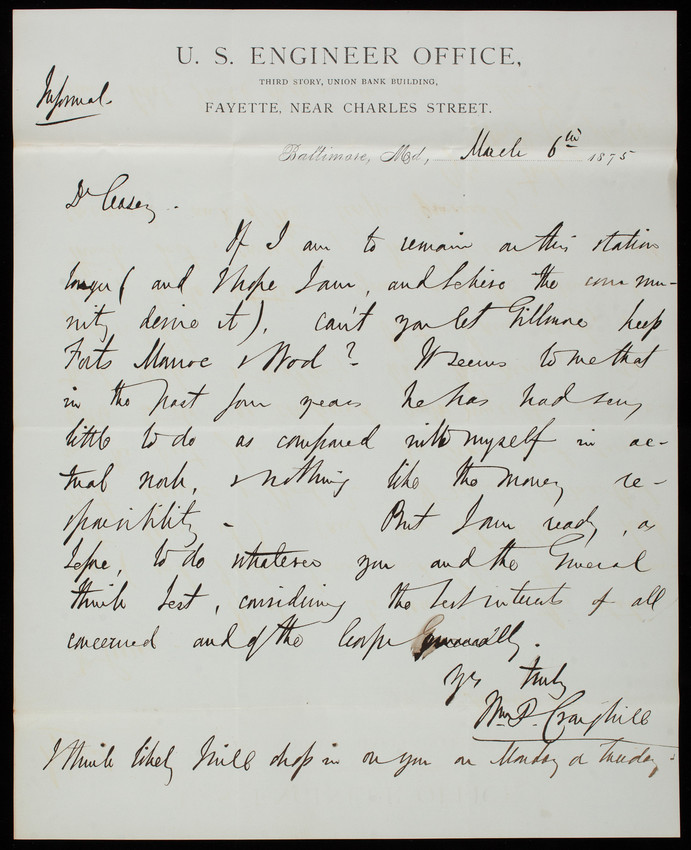 U. S. ENGINEER OFFICE,
THIRD STORY, UNION BANK BUILDING,
FAYETTE, NEAR CHARLES STREET.
Informal.
Baltimore, Md, March 6th 1875
Dr Casey.
If I am to remain on this station
longer (and I hope I am, and believe the commu-
nity desire it), can't you let Gillmore keep
Forts Monroe & Wool? It seems to me that
in the past four years he has had very
little to do as compared with myself in ac-
tual work, & nothing like the money re-
sponsibility - But I am ready, as
before, to do whatever you and the General
think best, considering the best interests of all
concerned and of the Corps generally.
Yrs truly
Wm. P. Craighill
I think likely I will drop in on you on Monday or Tuesday.